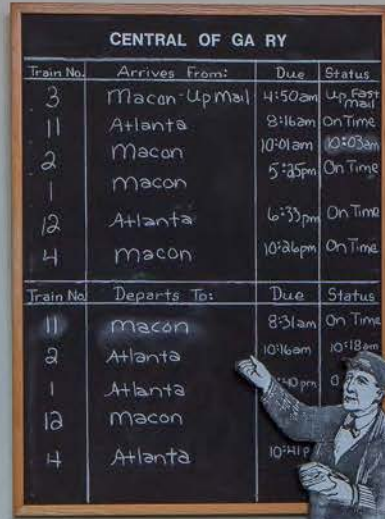 CENTRAL OF GA RY
Train No. Arrives From: Due Status
3 Macon-Up Mail 4:50am Up Fast Mail
11 Atlanta 8:16am On Time
2 Macon 10:01am 10:03am
1 Macon 5:25pm On Time
12 Atlanta 6:33pm On Time
4 Macon 10:26pm On Time
Train No. Departs To: Due Status
11 Macon 8:31am On Time
2 Atlanta 10:16am 10:18am
1 Atlanta
12 Macon
4 Atlanta 10:41p